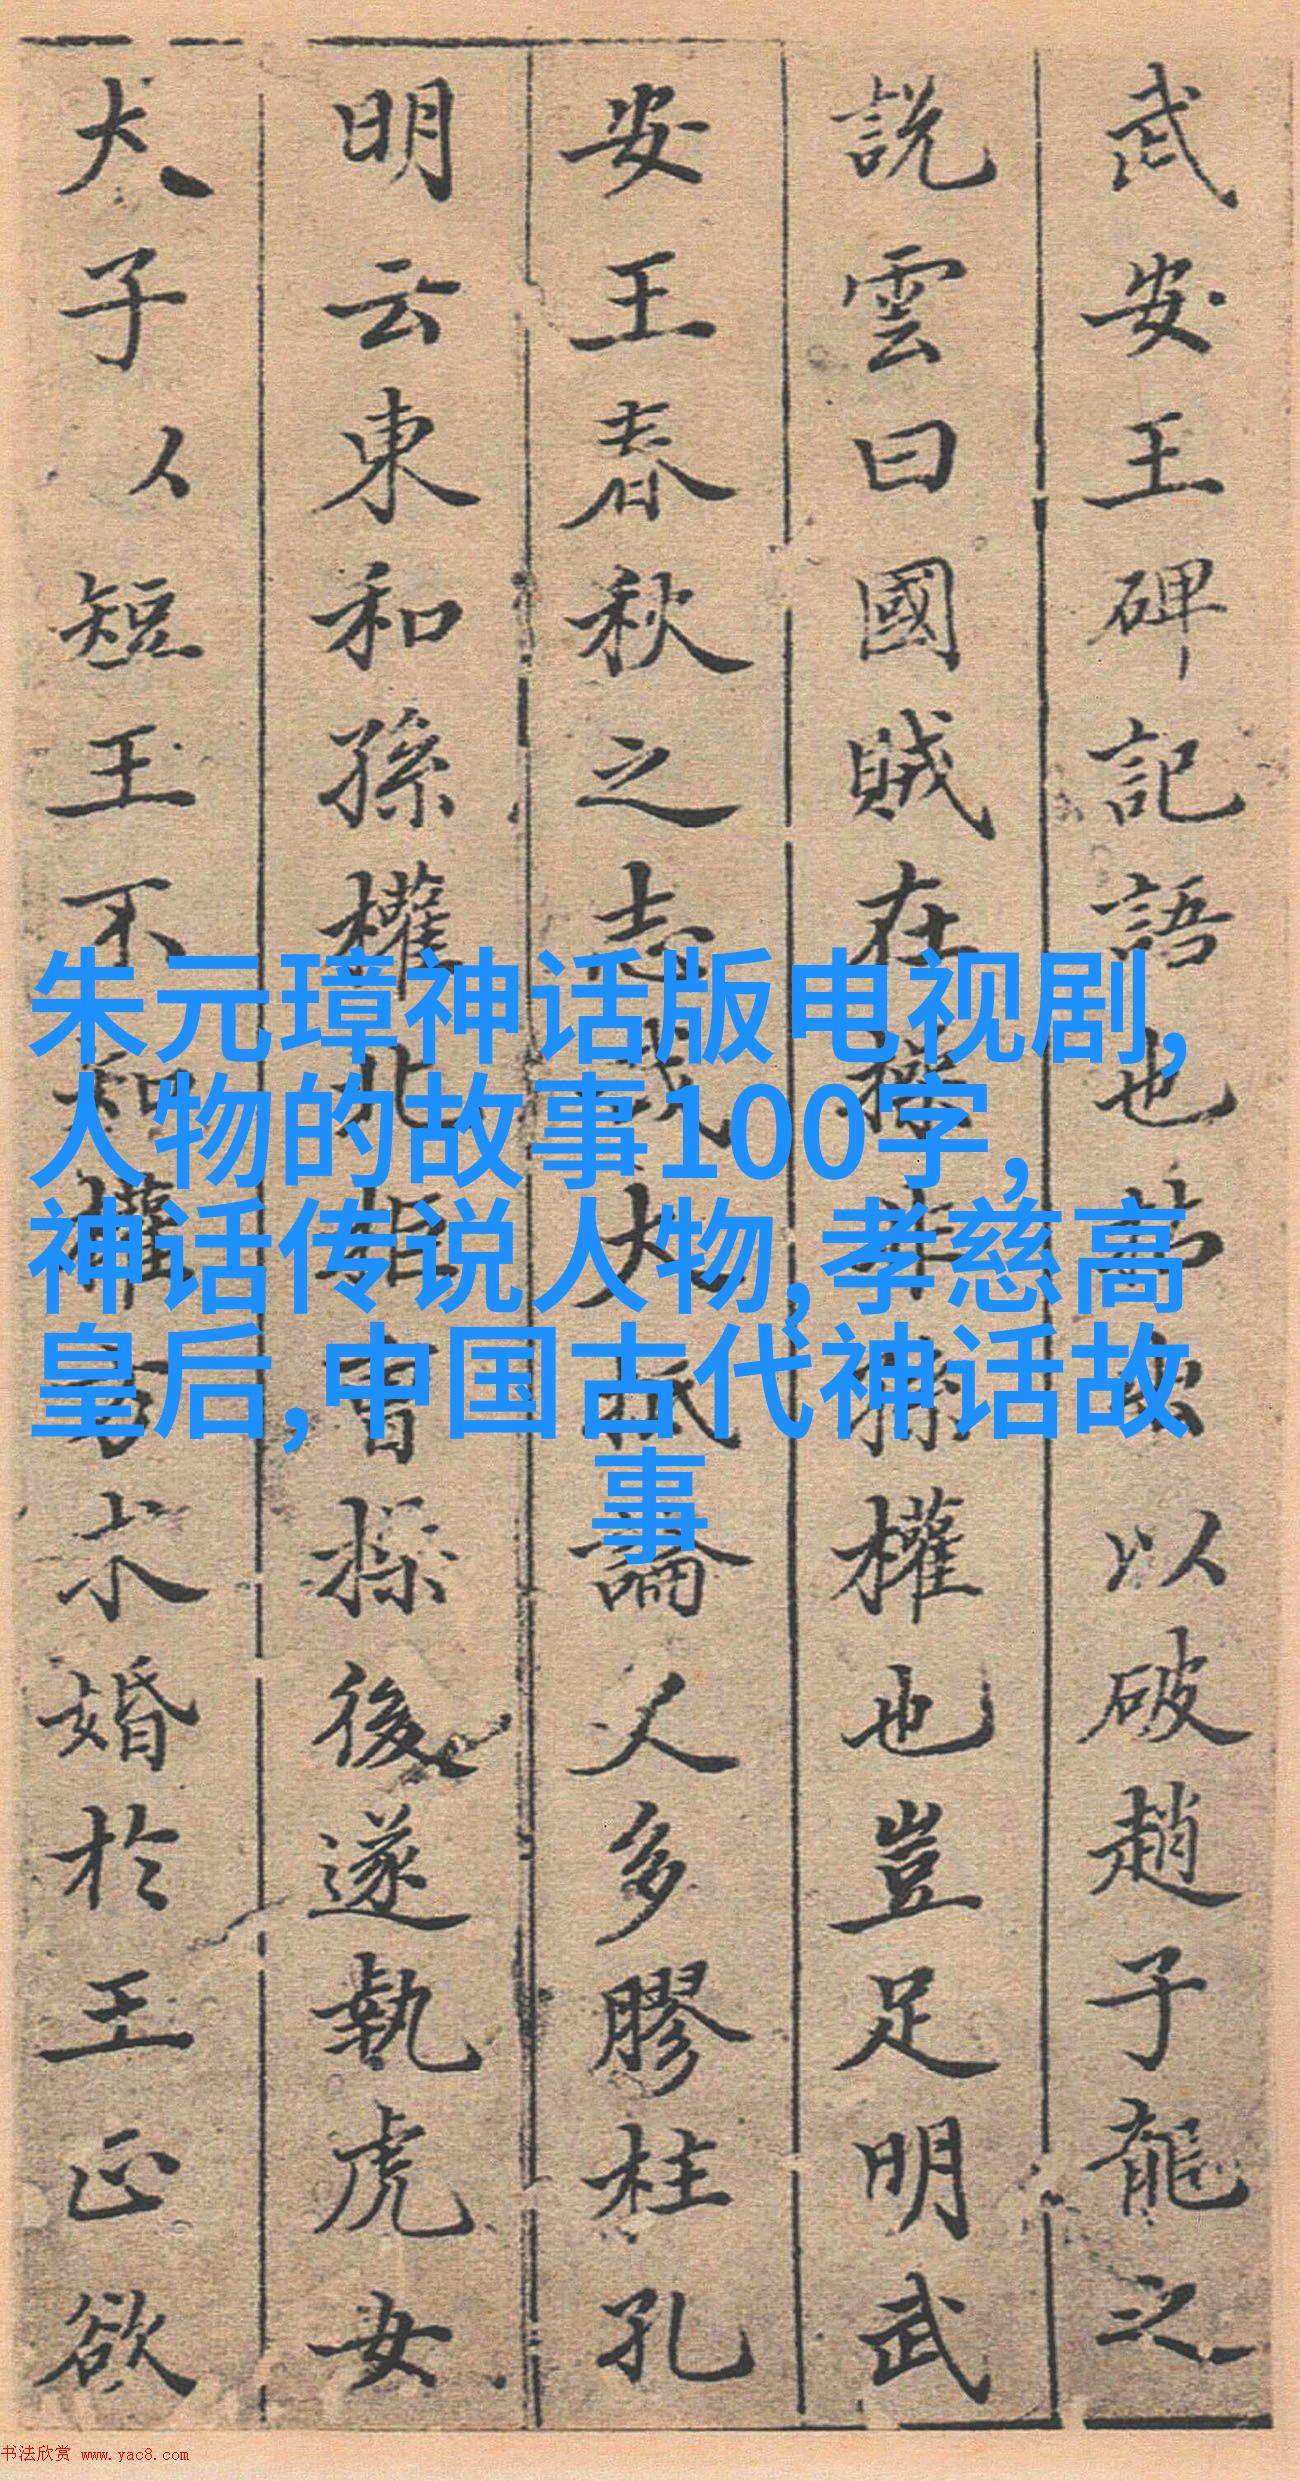 武安王碑記語也以破趙子龍之
說雲曰國賊在操非孫權也豈足明武
安王春秋之志哉大抵論人多膠柱孔
明云東和孫權北拒曹操後遂執虎女
犬子以短王不知權方求婚於王正欲
朱元璋神话版电视剧,
人物的故事100字,
神话传说人物,孝慈高
皇后,中国古代神话故
事
书法欣赏 www.yac8.com